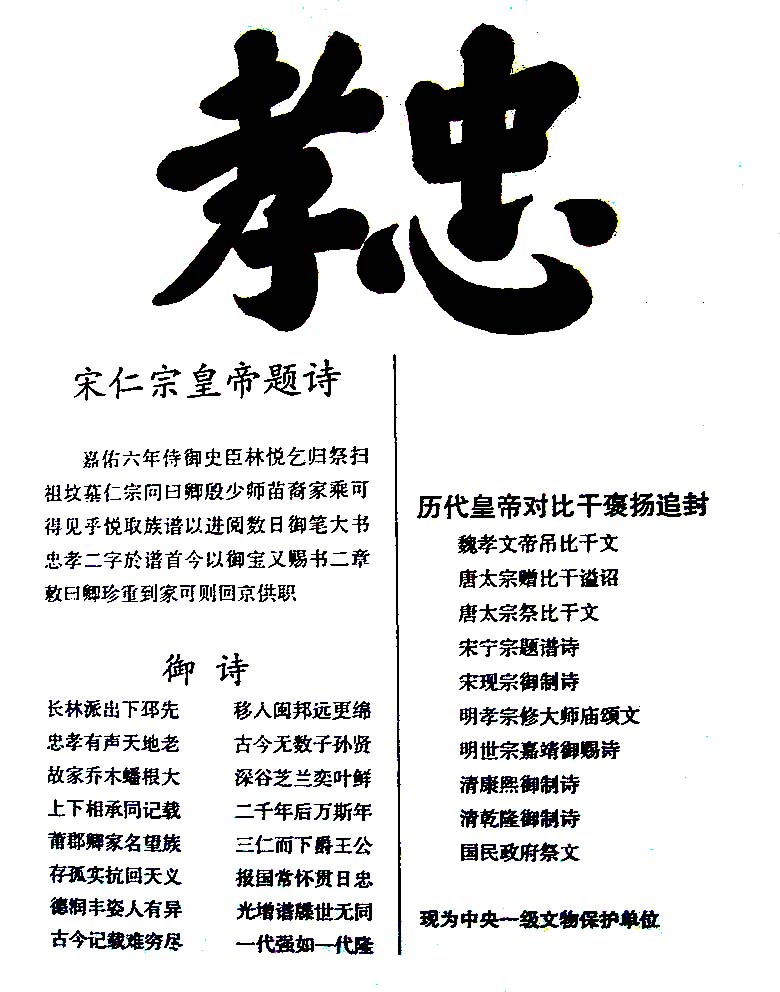 孝忠
宋仁宗皇帝题诗
嘉佑六年侍御史臣林悦乞归祭扫
祖坟墓仁宗问曰卿殷少师苗裔家乘可
得见乎悦取族谱以进阅数日御笔大书
忠孝二字於谱首今以御宝又赐书二章
敕曰卿珍重到家可则回京供职
御诗
长林派出下邳先 移入闽邦远更绵
忠孝有声天地老 古今无数子孙贤
故家乔木蟠根大 深谷芝兰奕叶鲜
上下相承同记载 二千年后万斯年
莆郡卿家名望族 三仁而下爵王公
存孤实抗回天义 报国常怀贯日忠
德润丰姿人有异 光增谱牒世无同
古今记载难穷尽 一代强如一代隆
历代皇帝对比干褒扬追封
魏孝文帝吊比干文
唐太宗赠比干谥诏
唐太宗祭比干文
宋宁宗题谱诗
宋现宗御制诗
明孝宗修大师庙颂文
明世宗嘉靖御赐诗
清康熙御制诗
清乾隆御制诗
国民政府祭文
现为中央一级文物保护单位